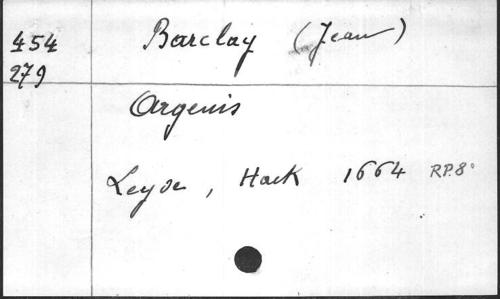 454 Barclay (Jean)
279
Argenis
Leyde, Hack 1664 RP.8°